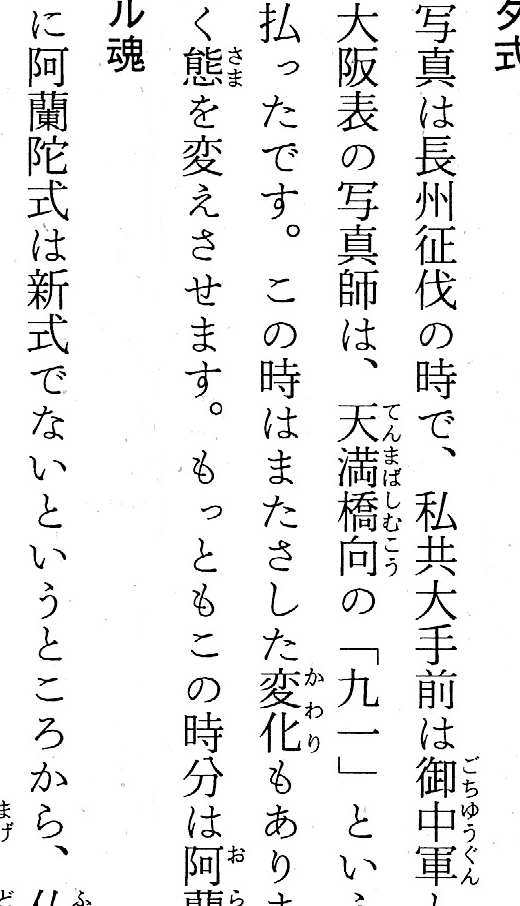 タ式
写真は長州征伐の時で、私共大手前は御中軍
大阪表の写真師は、天満橋向の「九一」とい
払ったです。この時はまたさした変化もあり
く態を変えさせます。もっともこの時分は阿蘭
ル魂
に阿蘭陀式は新式でないというところから、